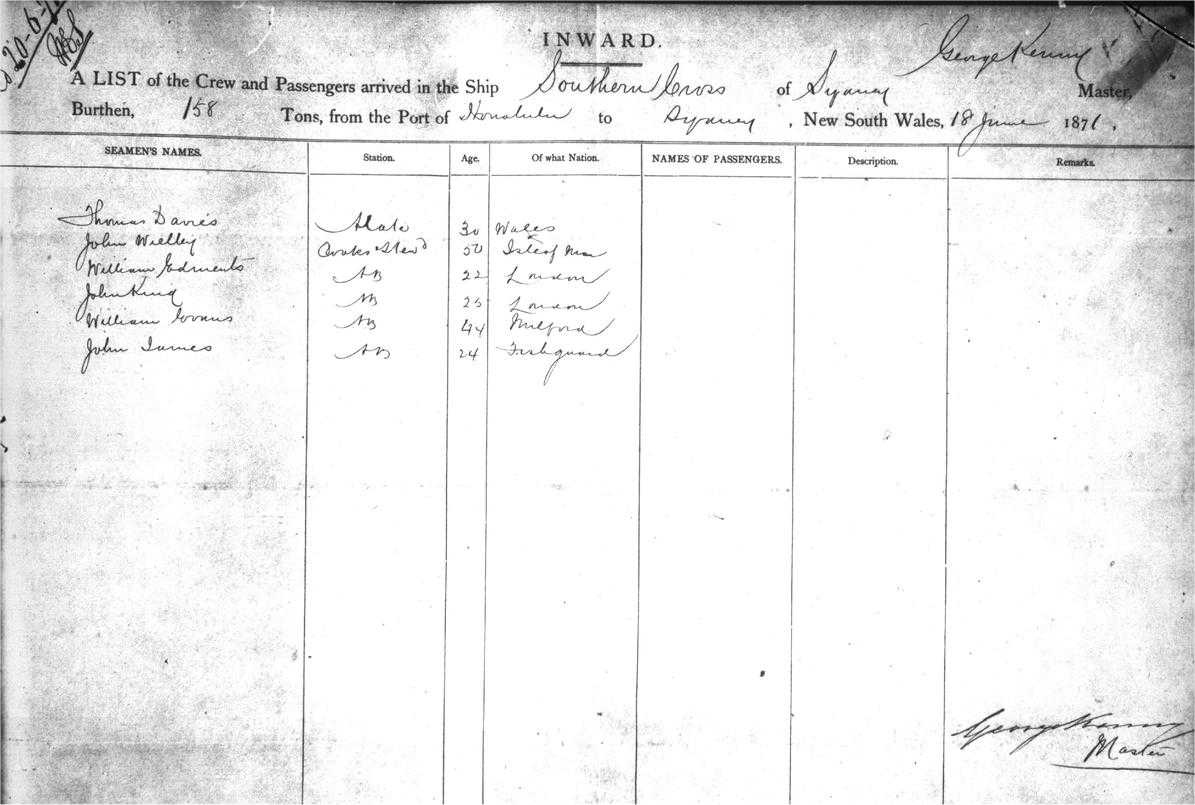 20-6-7
INWARD.
George Kenny
A LIST of the Crew and Passengers arrived in the Ship Southern Cross of Sydney Master,
Burthen, 158 Tons, from the Port of Honolulu to Sydney, New South Wales, 18 June 1871,
SEAMEN'S NAMES. Station. Age. Of what Nation. NAMES OF PASSENGERS. Description. Remarks.
Thomas Davies Mate 30 Wales
John 50 Isle of Man
William Edments AB 22 London
John King AB 25 London
William Evans AB 44 Milford
John James AB 24 Fishguard
George Kenny
Master